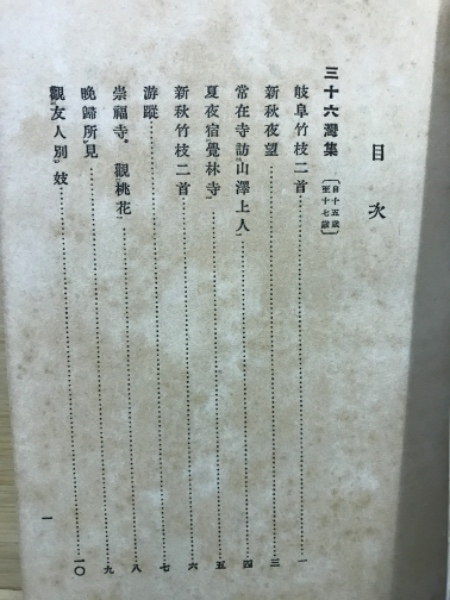 目次
三十六灣集〔自十五歳至十七歳〕
岐阜竹枝二首……一
新秋夜望……三
常在寺訪山澤上人……四
夏夜宿覺林寺……五
新秋竹枝二首……六
游蹤……七
崇福寺觀桃花……八
晩歸所見……九
觀友人別妓……一〇
一